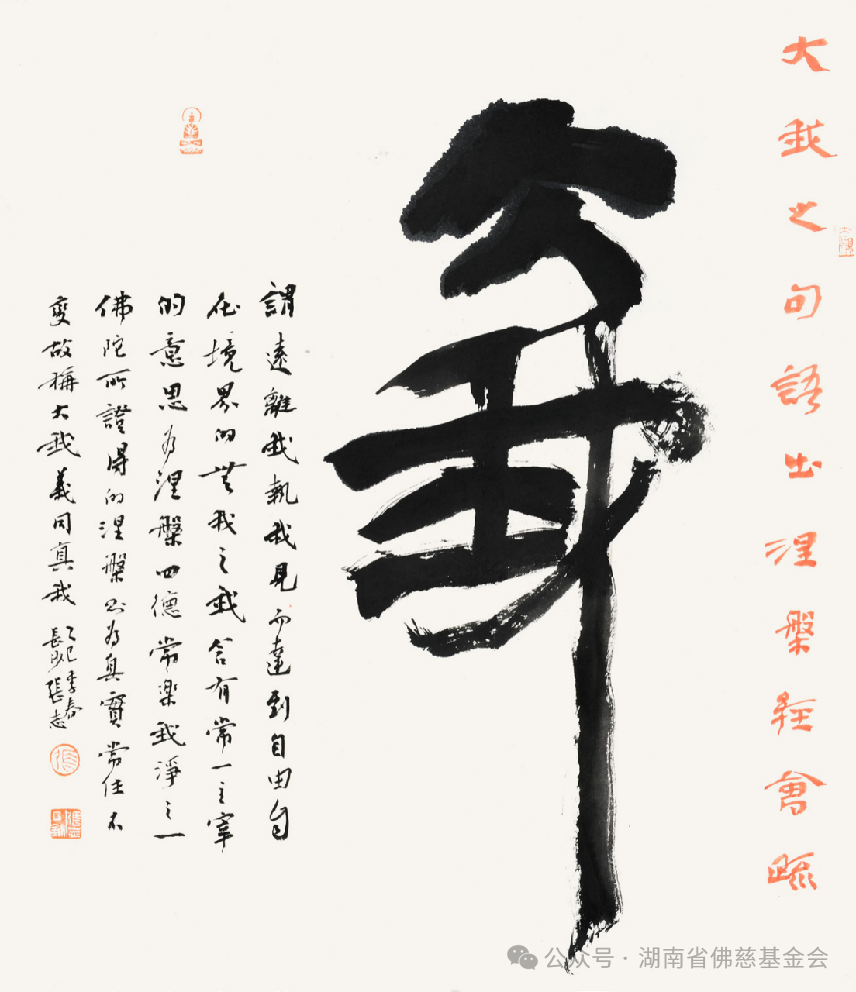 大我之句語出涅槃經會疏
大我
謂遠離我執我見而達到自由自
在境界的無我之我含有常一主宰
的意思为涅槃四德常樂我淨之一
佛陀所證得的涅槃以为真實常住不
變故稱大我義同真我
乙巳季春
長沙張志
公众号·湖南省佛慈基金会